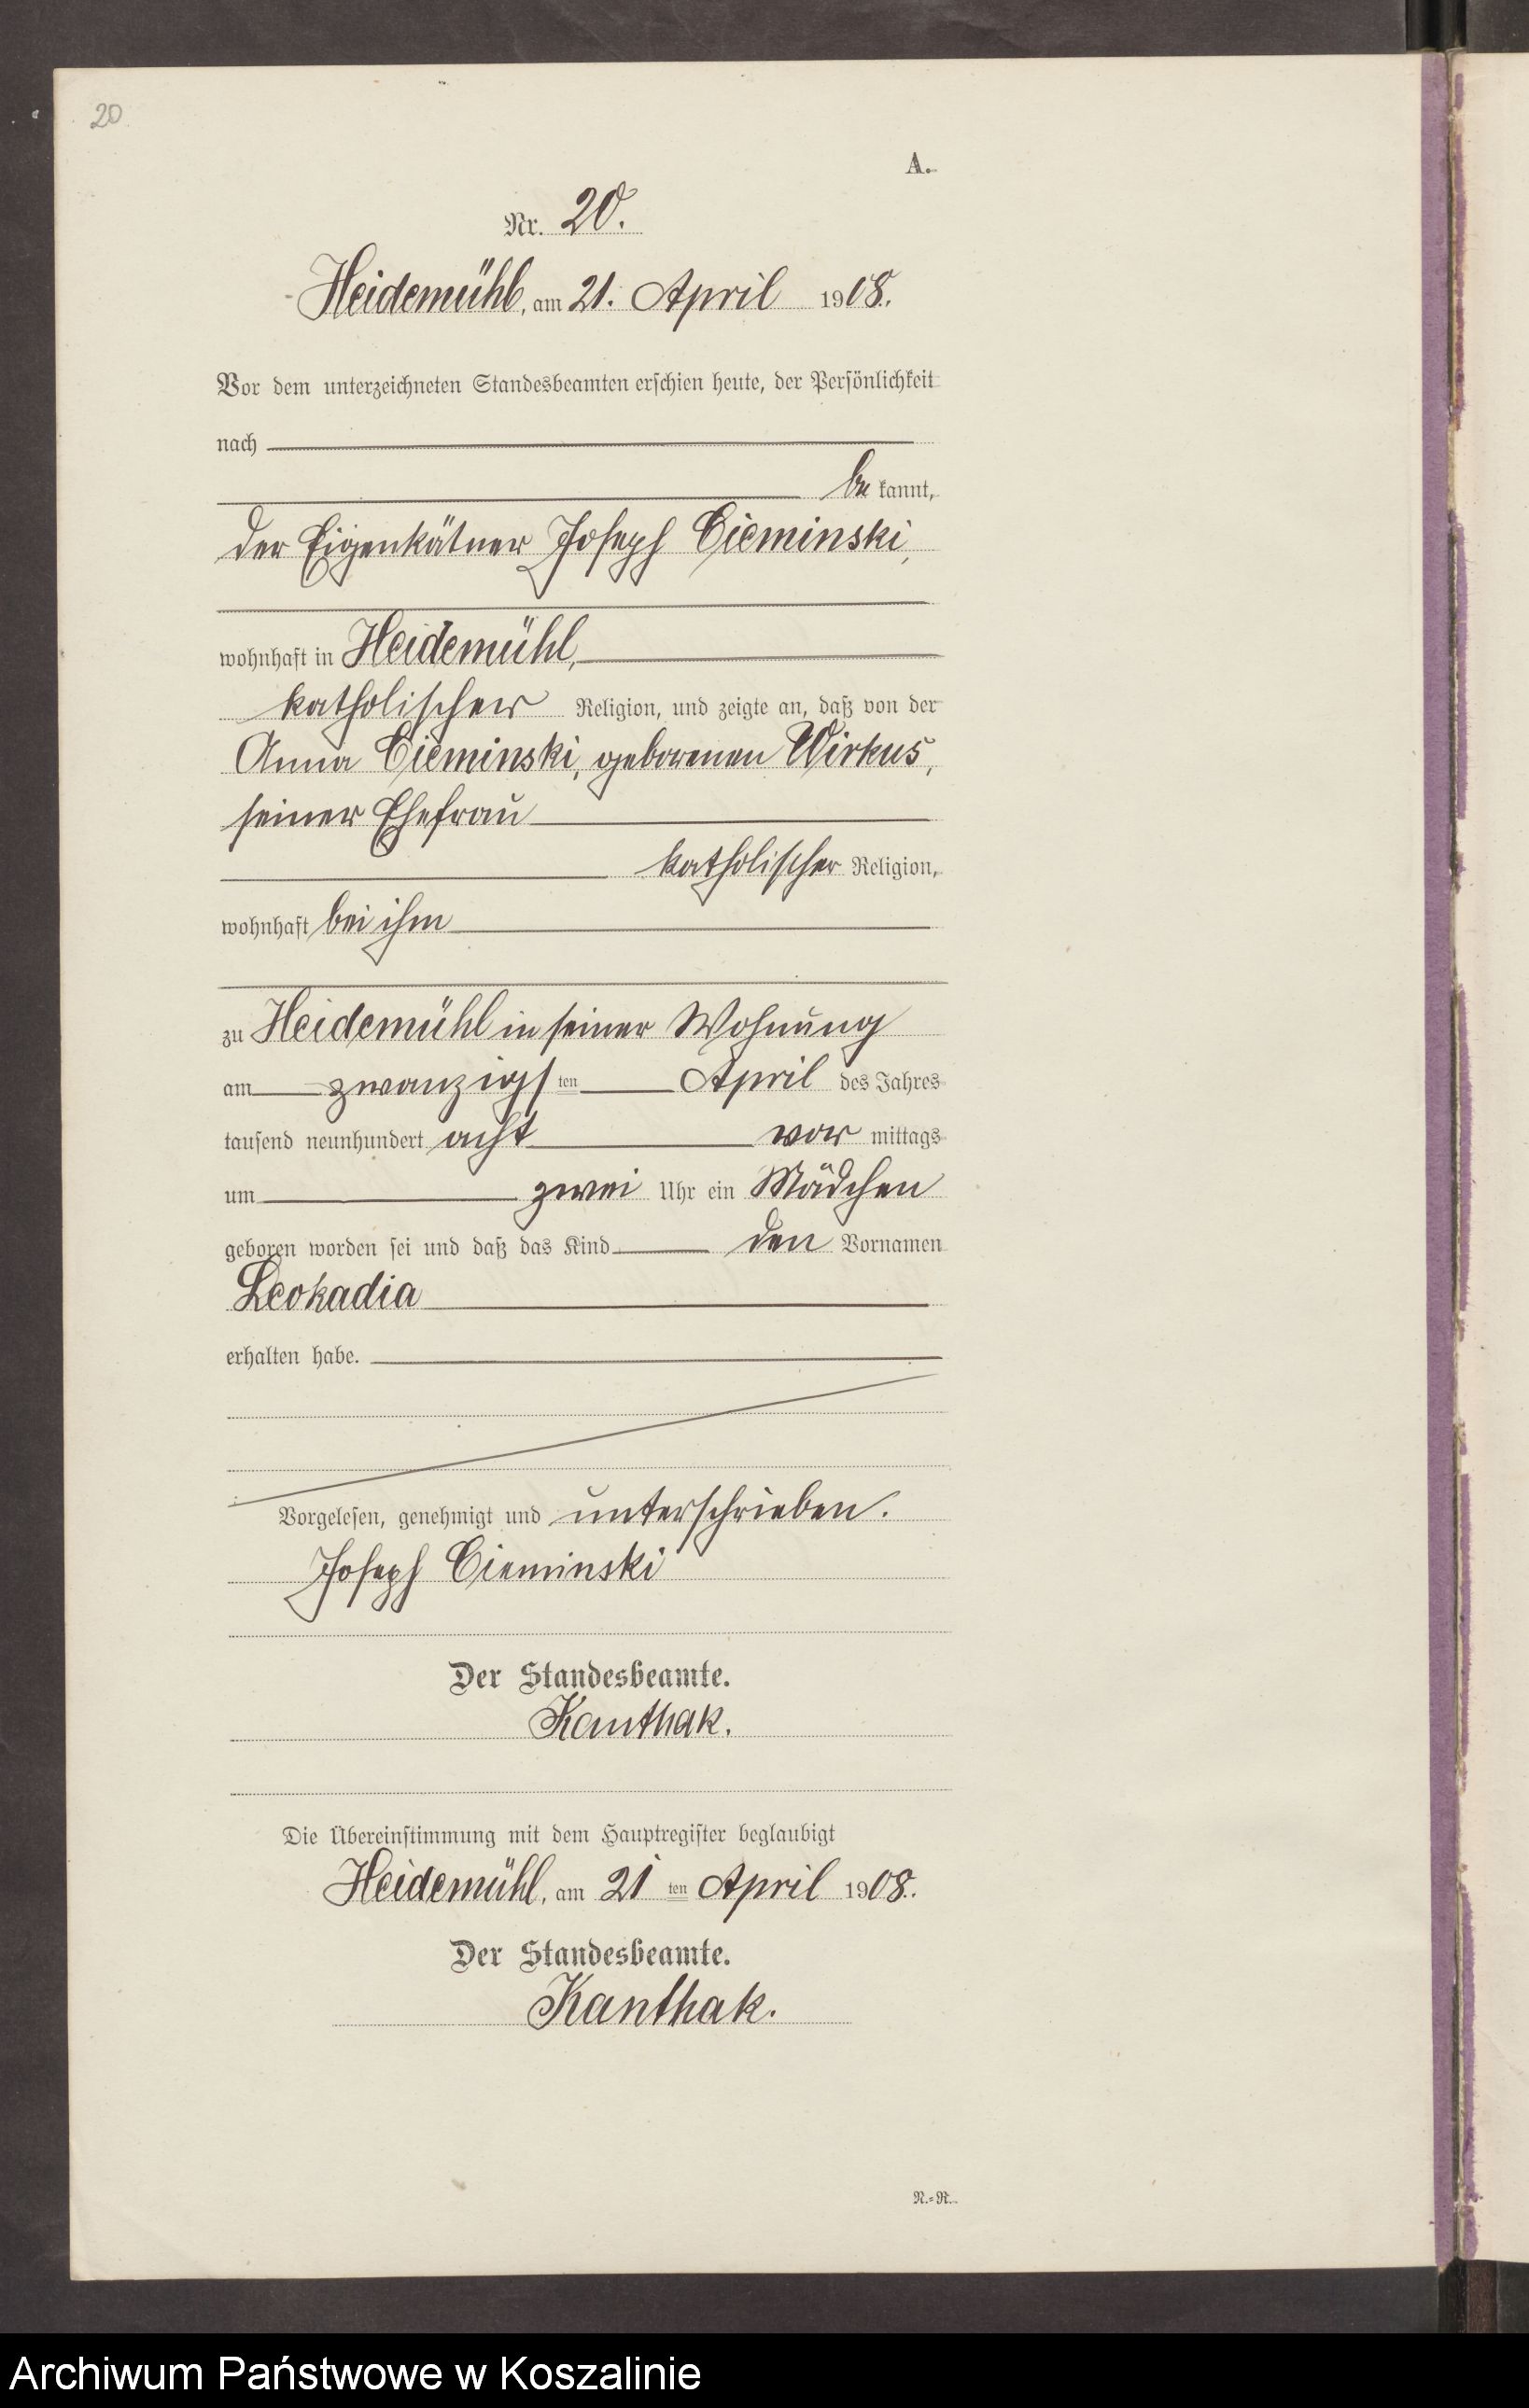 20
A.
Nr. 20.
Heidemühl, am 21. April 1908.
Vor dem unterzeichneten Standesbeamten erschien heute, der Persönlichkeit
nach
be kannt,
der Eigenkätner Joseph Cieminski,
wohnhaft in Heidemühl,
katholischer Religion, und zeigte an, daß von der
Anna Cieminski, geborenen Wirkus,
seiner Ehefrau
katholischer Religion,
wohnhaft bei ihm
zu Heidemühl in seiner Wohnung
am zwanzigsten April des Jahres
tausend neunhundert acht vor mittags
um zwei Uhr ein Mädchen
geboren worden sei und daß das Kind den Vornamen
Leokadia
erhalten habe.
Vorgelesen, genehmigt und unterschrieben.
Joseph Cieminski
Der Standesbeamte.
Kanthak.
Die Übereinstimmung mit dem Hauptregister beglaubigt
Heidemühl, am 21ten April 1908.
Der Standesbeamte.
Kanthak.
N.=R.
Archiwum Państwowe w Koszalinie